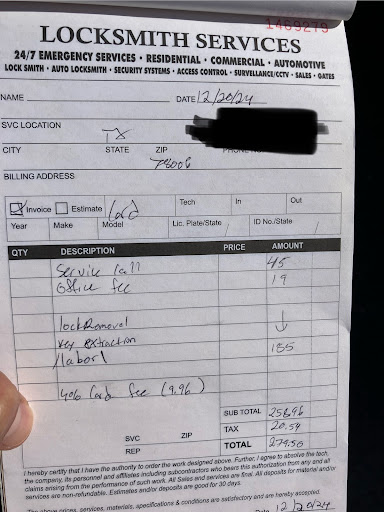 1469279
LOCKSMITH SERVICES
24/7 EMERGENCY SERVICES • RESIDENTIAL • COMMERCIAL • AUTOMOTIVE
LOCK SMITH • AUTO LOCKSMITH • SECURITY SYSTEMS • ACCESS CONTROL • SURVELLANCE/CCTV • SALES • GATES
NAME DATE 12/20/24
SVC LOCATION
TX
CITY STATE ZIP
78006
BILLING ADDRESS
Invoice Estimate Tech In Out
Year Make Model Lic. Plate/State ID No./State
QTY DESCRIPTION PRICE AMOUNT
Service Call 45
Office fee 19
lock Removal
Key Extraction
/labor 185
4% Card fee (9.96)
SUB TOTAL 258.96
SVC ZIP TAX 20.54
REP TOTAL 279.50
I hereby certify that I have the authority to order the work designed above. Further, I agree to absolve the tech,
the company, its personnel and affiliates including subcontractors who bears this authorization from any and all
claims arising from the performance of such work. All Sales and services are final. All deposits for material and/or
services are non-refundable. Estimates and/or deposits are good for 30 days.
The above prices, services, materials, specifications & conditions are satisfactory and are hereby accepted.
12/20/24